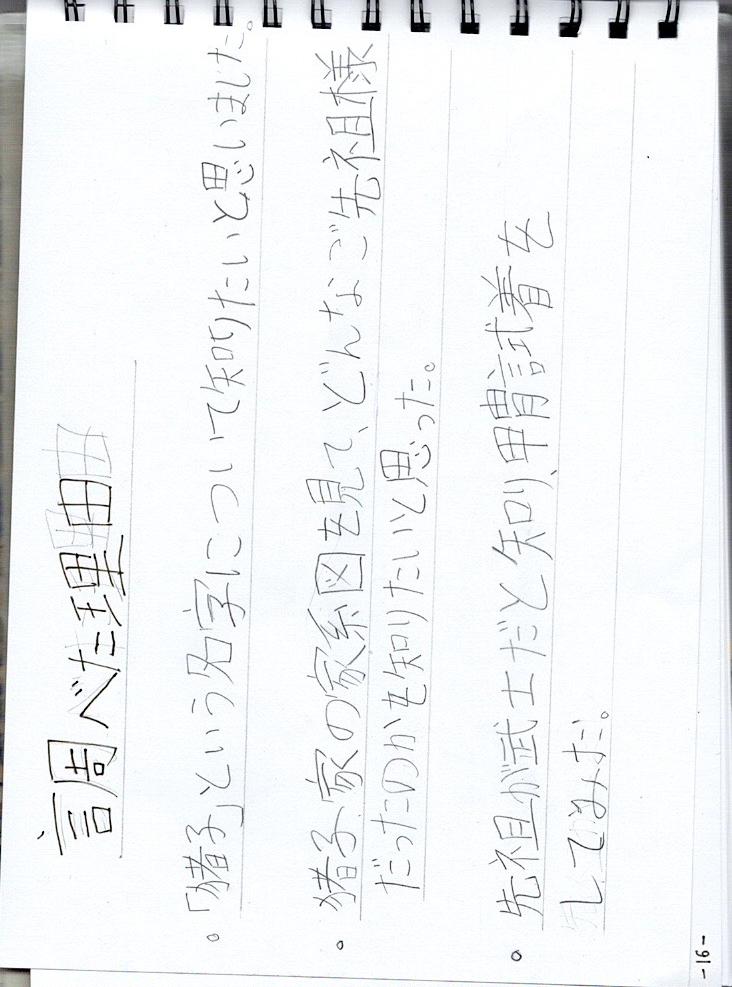 調べた理由
。「猪子」という名字について知りたいと思いました。
。猪子家の家系図を見て、どんなご先祖様
だったのかも知りたいと思った。
。先祖が武士だと知り、甲冑試着を
してみた。
-16-